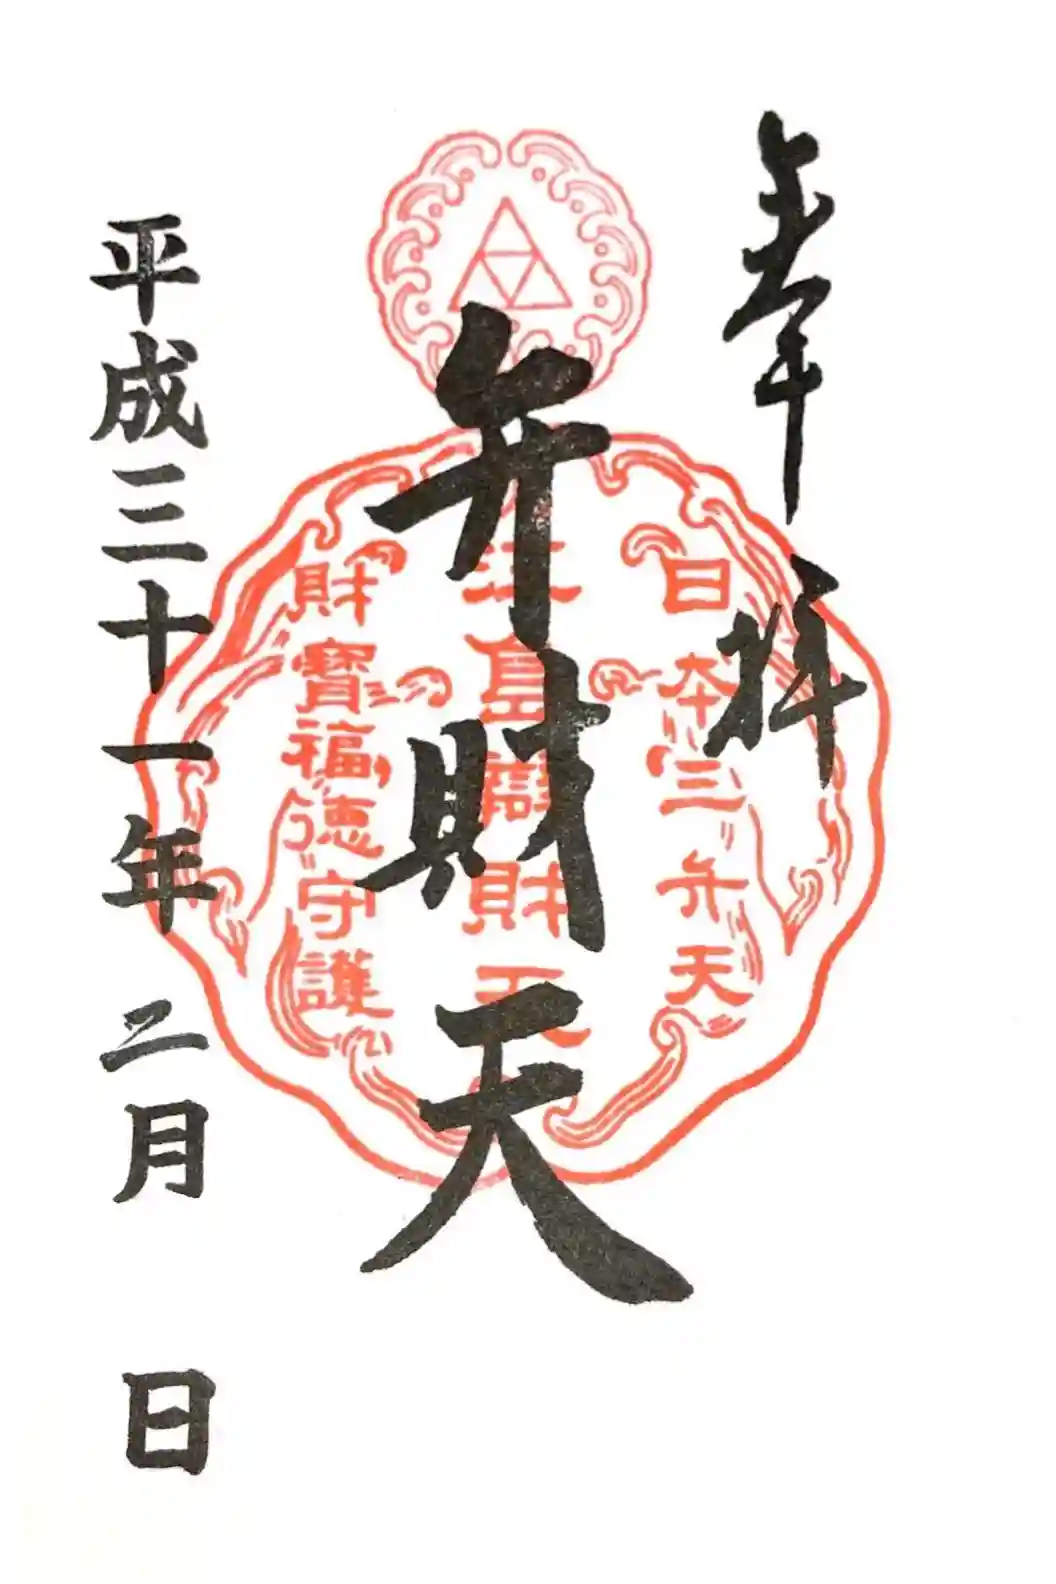 奉拝
日本三弁天
弁財天
江島辯財天
財寶福徳守護
平成三十一年 二月 日